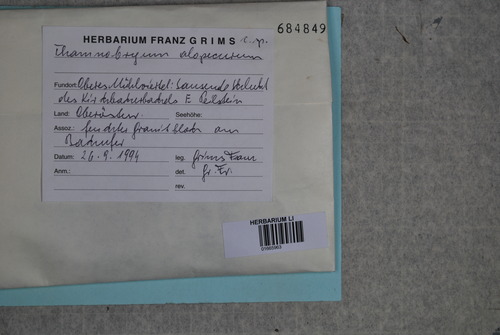 684849
HERBARIUM FRANZ GRIMS
Thamnobryum alopecurum
Fundort: Oberes Mühlviertel: Sausende Schlucht
des E Peilstein
Land: Oberösterr. Seehöhe:
Assoz.: feuchter Granitblock am
Bachufer
Datum: 26.9.1994 leg. Grims Franz
Anm.: det. Gr. Fr.
rev.
HERBARIUM LI